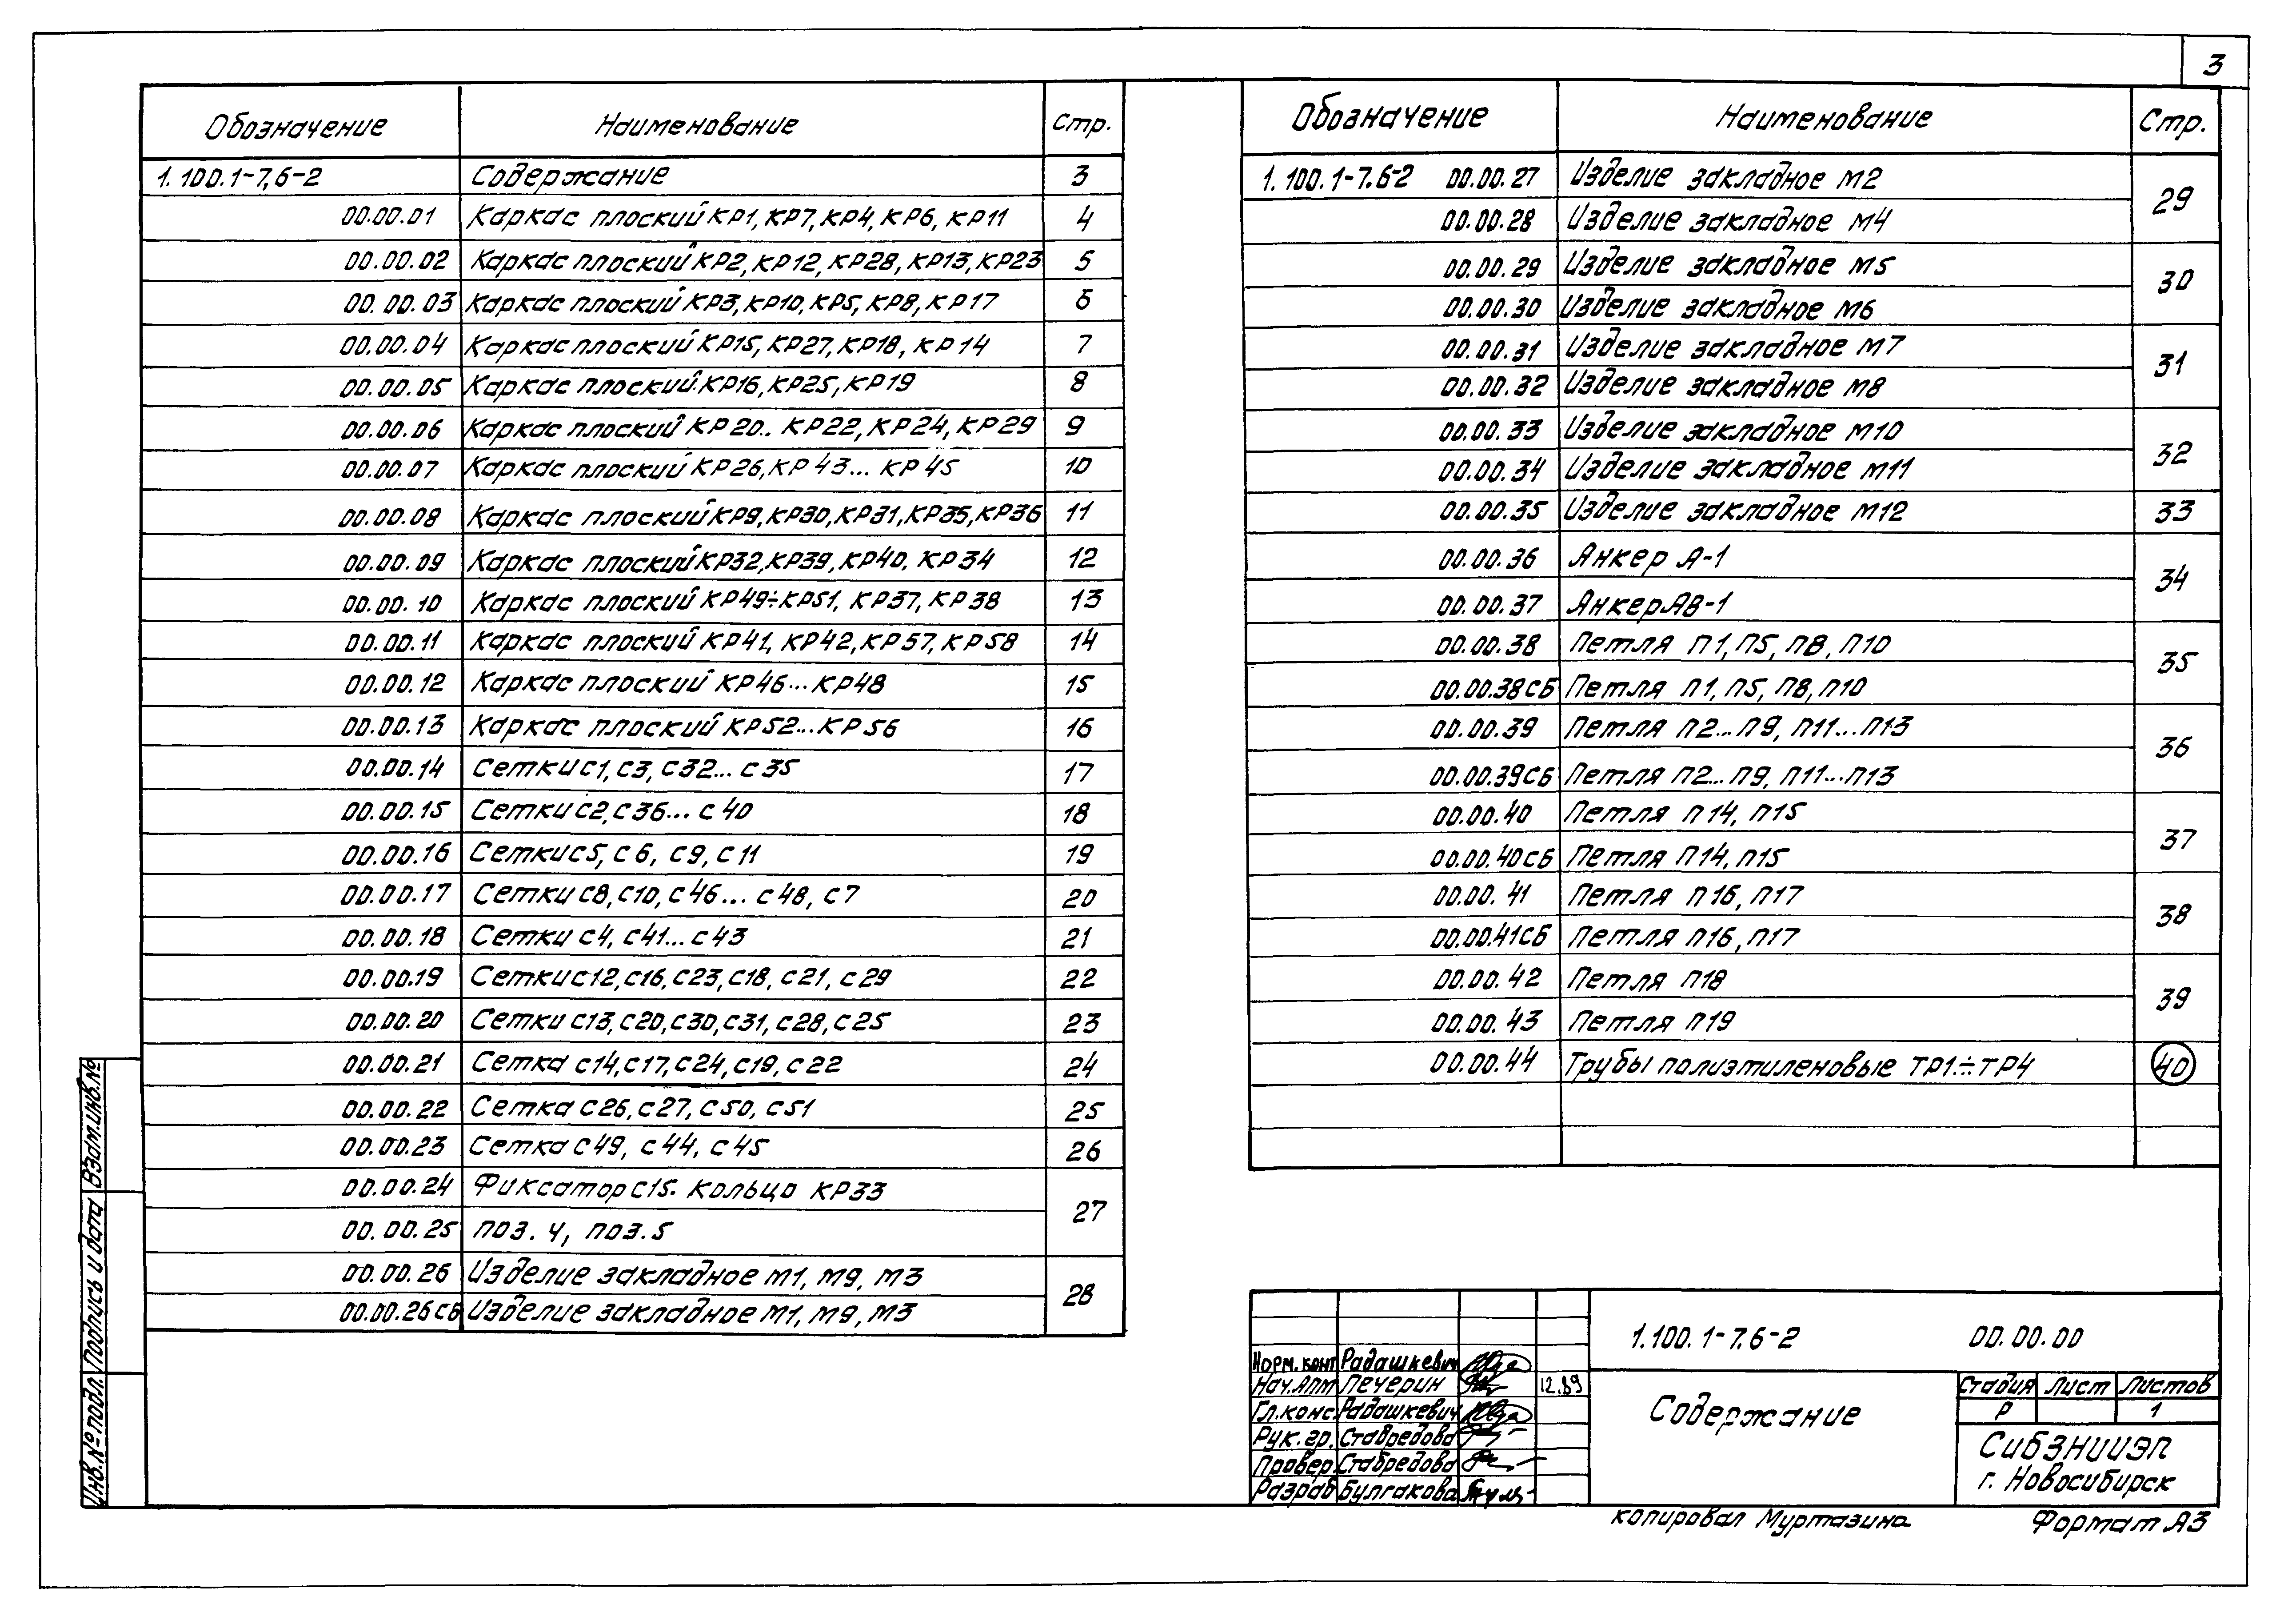 3
Обозначение Наименование Стр.
1.100.1-7,6-2 Содержание 3
00.00.01 Каркас плоский КР1, КР7, КР4, КР6, КР11 4
00.00.02 Каркас плоский КР2, КР12, КР28, КР13, КР23 5
00.00.03 Каркас плоский КР3, КР10, КР5, КР8, КР17 6
00.00.04 Каркас плоский КР15, КР27, КР18, КР14 7
00.00.05 Каркас плоский КР16, КР25, КР19 8
00.00.06 Каркас плоский КР20.. КР22, КР24, КР29 9
00.00.07 Каркас плоский КР26, КР43... КР45 10
00.00.08 Каркас плоский КР9, КР30, КР31, КР35, КР36 11
00.00.09 Каркас плоский КР32, КР39, КР40, КР34 12
00.00.10 Каркас плоский КР49÷КР51, КР37, КР38 13
00.00.11 Каркас плоский КР41, КР42, КР57, КР58 14
00.00.12 Каркас плоский КР46...КР48 15
00.00.13 Каркас плоский КР52...КР56 16
00.00.14 Сетки С1, С3, С32... С35 17
00.00.15 Сетки С2, С36... С40 18
00.00.16 Сетки С5, С6, С9, С11 19
00.00.17 Сетки С8, С10, С46... С48, С7 20
00.00.18 Сетки С4, С41... С43 21
00.00.19 Сетки С12, С16, С23, С18, С21, С29 22
00.00.20 Сетки С13, С20, С30, С31, С28, С25 23
00.00.21 Сетка С14, С17, С24, С19, С22 24
00.00.22 Сетка С26, С27, С50, С51 25
00.00.23 Сетка С49, С44, С45 26
00.00.24 Фиксатор С15. Кольцо КР33 27
00.00.25 поз. 4, поз. 5
00.00.26 Изделие закладное М1, М9, М3 28
00.00.26СБ Изделие закладное М1, М9, М3
Обозначение Наименование Стр.
1.100.1-7.6-2 00.00.27 Изделие закладное М2 29
00.00.28 Изделие закладное М4
00.00.29 Изделие закладное М5 30
00.00.30 Изделие закладное М6
00.00.31 Изделие закладное М7 31
00.00.32 Изделие закладное М8
00.00.33 Изделие закладное М10 32
00.00.34 Изделие закладное М11
00.00.35 Изделие закладное М12 33
00.00.36 Анкер А-1 34
00.00.37 Анкер АВ-1
00.00.38 Петля П1, П5, П8, П10 35
00.00.38СБ Петля П1, П5, П8, П10
00.00.39 Петля П2...П9, П11...П13 36
00.00.39СБ Петля П2...П9, П11...П13
00.00.40 Петля П14, П15 37
00.00.40СБ Петля П14, П15
00.00.41 Петля П16, П17 38
00.00.41СБ Петля П16, П17
00.00.42 Петля П18 39
00.00.43 Петля П19
00.00.44 Трубы полиэтиленовые ТР1÷ТР4 40
Взам.инв.№
Подпись и дата
Инв.№ подл.
Норм.конт Радашкевич
Нач.АПМ Печерин 12.89
Гл.конс. Радашкевич
Рук.гр. Ставредова
Провер. Ставредова
Разраб Булгакова
1.100.1-7.6-2 00.00.00
Содержание
Стадия Лист Листов
Р 1
СибЗНИИЭП
г. Новосибирск
копировал Муртазина Формат А3